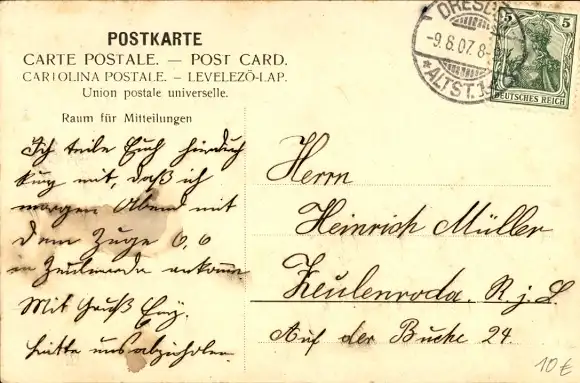 POSTKARTE
CARTE POSTALE. — POST CARD.
CARTOLINA POSTALE. — LEVELEZŐ-LAP.
Union postale universelle.
Raum für Mitteilungen
Ich teile Euch hierdurch
kurz mit, daß ich
morgen Abend mit
dem Zuge 6,6
in Zeulenroda ankomme.
Mit Gruß
bitte uns abzuholen.
DRESD
-9.6.07. 8-
*ALTST. 1
5 5
DEUTSCHES REICH
Herrn
Heinrich Müller
Zeulenroda. R. j. L.
Auf der Buche 24.
10€